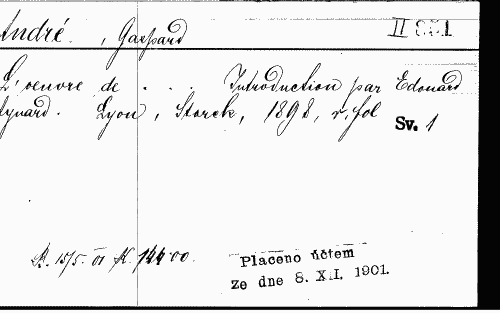 André. , Gaspard II 851
L'oeuvre de . . . Introduction par Edouard
Aynard. Lyon, Storck, 1898, r. fol
Sv. 1
R. 15/5. 01 K. 144.00.
Placeno účtem
Ze dne 8. XII. 1901.